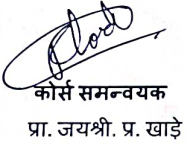 कोर्स समन्वयक
प्रा. जयश्री. प्र. खाडे